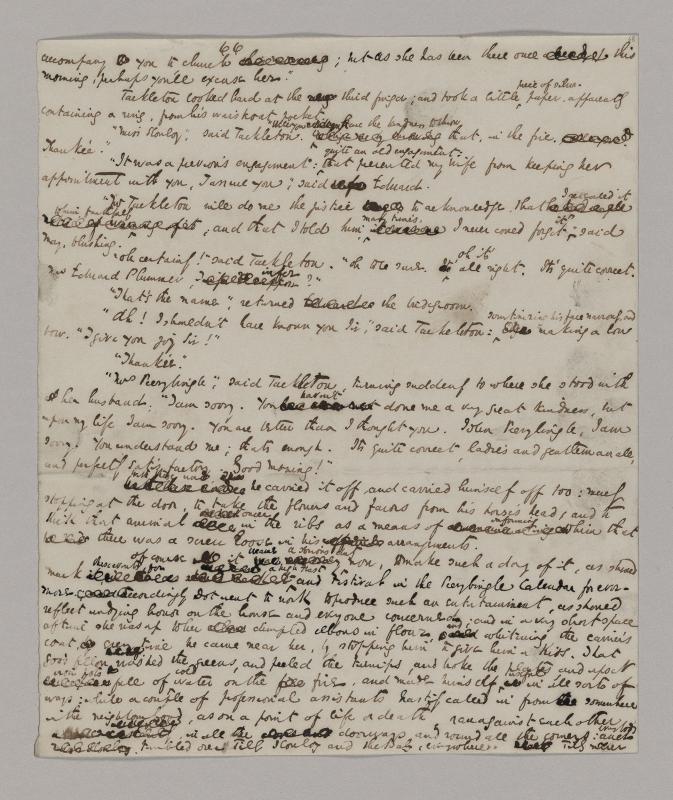 66
accompany you to church ; but as she has been there once this
morning, perhaps you'll excuse her."
piece of silver
Tackleton looked hard at the third finger; and took a little paper. apparently
containing a ring, from his waistcoat pocket.
have the kindness to throw
"Miss Slowboy", said Tackleton. that, in the fire.
Thank'ee."
quite an old engagement:
"It was a previous engagement: that prevented my wife from keeping her
appointment with you, I assure you", said Edward.
I revealed it
"Mr Tackleton will do me the justice to acknowledge, that
to him faithfully
many times,
, and that I told him I never could forget it", said
May, blushing.
"Oh certainly!" said Tackleton. "Oh to be sure. Oh it's all right. It's quite correct.
Mrs Edward Plummer, I infer ?"
"That's the name", returned the bridegroom.
scrutinizing his face narrowly, and
"Ah! I shouldn't have known you Sir", said Tackleton: making a low
bow. "I give you joy Sir!"
"Thank'ee."
"Mrs Peerybingle", said Tackleton, turning suddenly to where she stood with
her husband: "I am sorry. You haven't done me a very great kindness, but
upon my life I am sorry. You are better than I thought you. John Peerybingle, I am
sorry. You understand me; that's enough. It's quite correct, ladies and gentlemen all,
and perfectly satisfactory. Good morning!"
he carried it off, and carried himself off too: merely
stopping at the door, to take the flowers and favors from his horse's head, and to
kick that animal once in the ribs as a means of informing him that
there was a screw loose in his arrangements.
of course it became a serious duty now, to make such a day of it, as should
mark these events for a high Feast and Festival in the Peerybingle Calendar for ever-
more. Accordingly Dot went to work to produce such an entertainment, as should
reflect undying honor on the house and everyone concerned; and in a very short space
of time she was up to her dimpled elbows in flour, and whitening the carrier's
coat, every time he came near her, by stopping him to give him a kiss. That
good fellow washed the greens, and peeled the turnips, and broke the plates, and upset
iron pots full of cold water on the fire, and made himself useful in all sorts of
ways: while a couple of professional assistants hastily called in from somewhere
in the neighbourhood, as on a point of life or death, ran against each other
in all the doorways and round all the corners:
tumbled over Tilly Slowboy and the Baby, everywhere. Tilly never